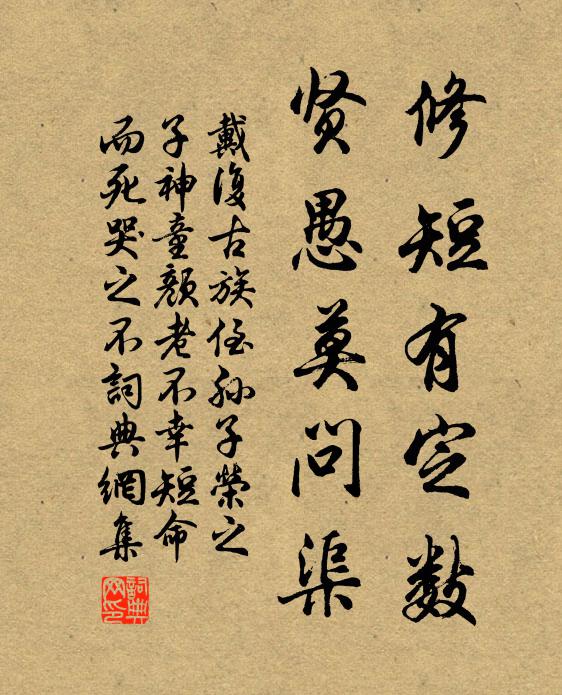 修短有定数
贤愚莫问渠
戴復古族侄孙子榮之
子神童顏老不幸短命
而死哭之不詞典網集
詞典网印